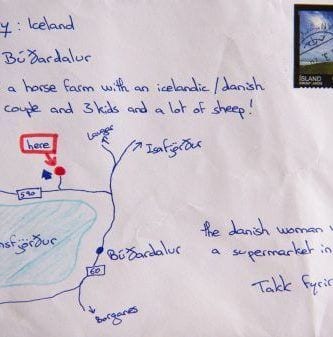 y: Iceland
Búðardalur
a horse farm with an icelandic/danish
couple and 3 kids and a lot of sheep!
here
Laugar
Isafjörður
590
msfjörður
Búðardalur
60
Borganes
the danish woman w
a supermarket in
Takk fyrir
ÍSLAND